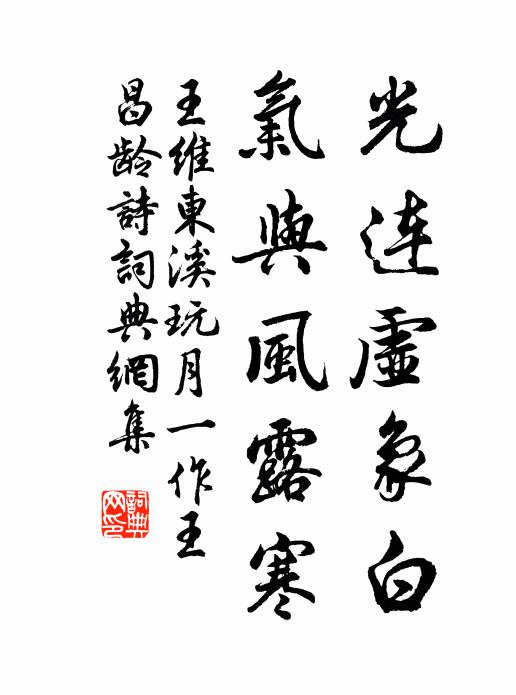 光连虚象白
氣與風露寒
王維東溪玩月一作王
昌龄詩詞典網集
詞典
网印